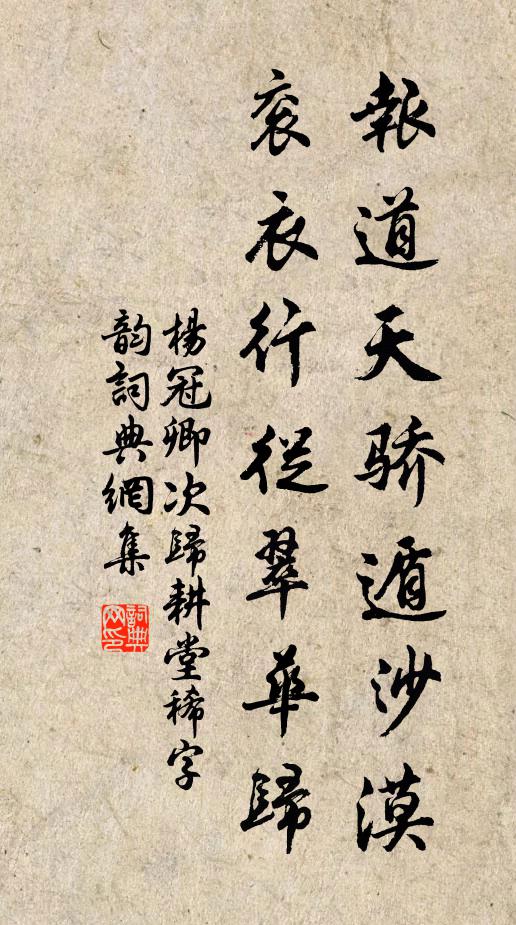 報道天骄遁沙漠
衮衣行從翠華歸
楊冠卿次歸耕堂稀字
韵詞典網集
詞典
网印